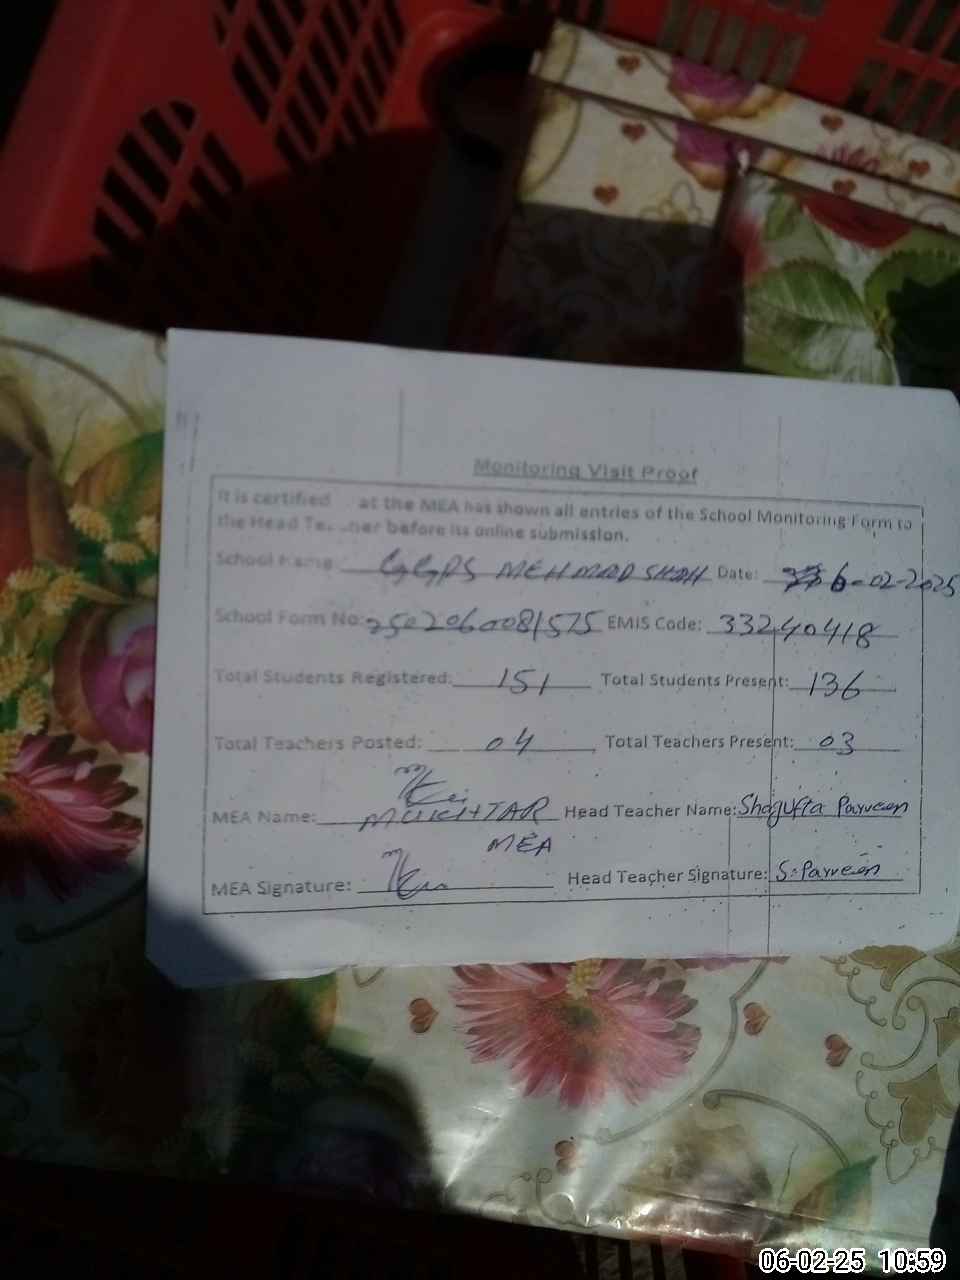 Monitoring Visit Proof
It is certified at the MEA has shown all entries of the School Monitoring Form to
the Head Te.. ..her before its online submission.
School Name: GGPS MEHMAD SHAH Date: 6-02-2025
School Form No: 2502060081575 EMIS Code: 33240418
Total Students Registered: 151 Total Students Present: 136
Total Teachers Posted: 04 Total Teachers Present: 03
MEA Name: MUKHTAR Head Teacher Name: Shagufta Parveen
MEA
MEA Signature: Head Teacher Signature: S.Parveen
06-02-25 10:59